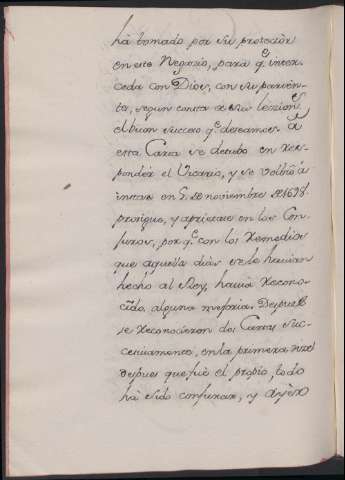 hà tomado por su protectòr
en este Negozio, para q.e inter-
ceda con Dios, con su parien-
ta, segun consta
el buen succeso q.e deseamos. à
esta Carta se detubo en res-
ponder el Vicario, y se volbiò à
instar en 5 de noviembre de 1698.
prosigue, y aprietase en los Con-
juros, por q.e con los Remedios
que aquellos dias se le havian
hecho al Rey, havia recono-
cido alguna mejoria. Despues
se reconocieron dos Cartas suc-
cesivamente, en la primera dize
despues que fuè el propio, todo
hà sido conjurar, y ayèr